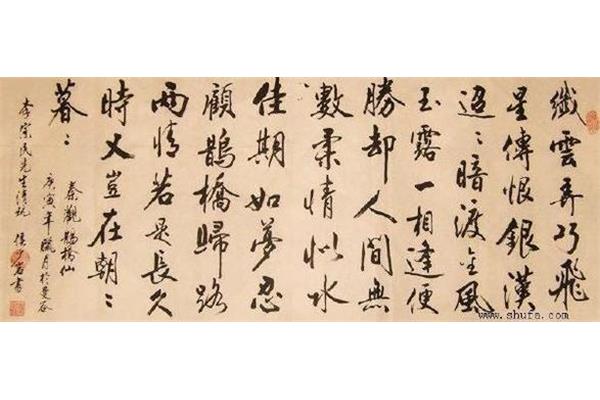 纖雲弄巧飛
星傳恨銀漢
迢〻暗渡金風
玉露一相逢便
勝却人間無
數柔情似水
佳期如夢忍
顧鵲橋歸路
兩情若是長久
時又豈在朝〻
暮〻
秦觀鵲橋仙
庚寅年臘月於
李宗民先生清玩
www.shufa.com